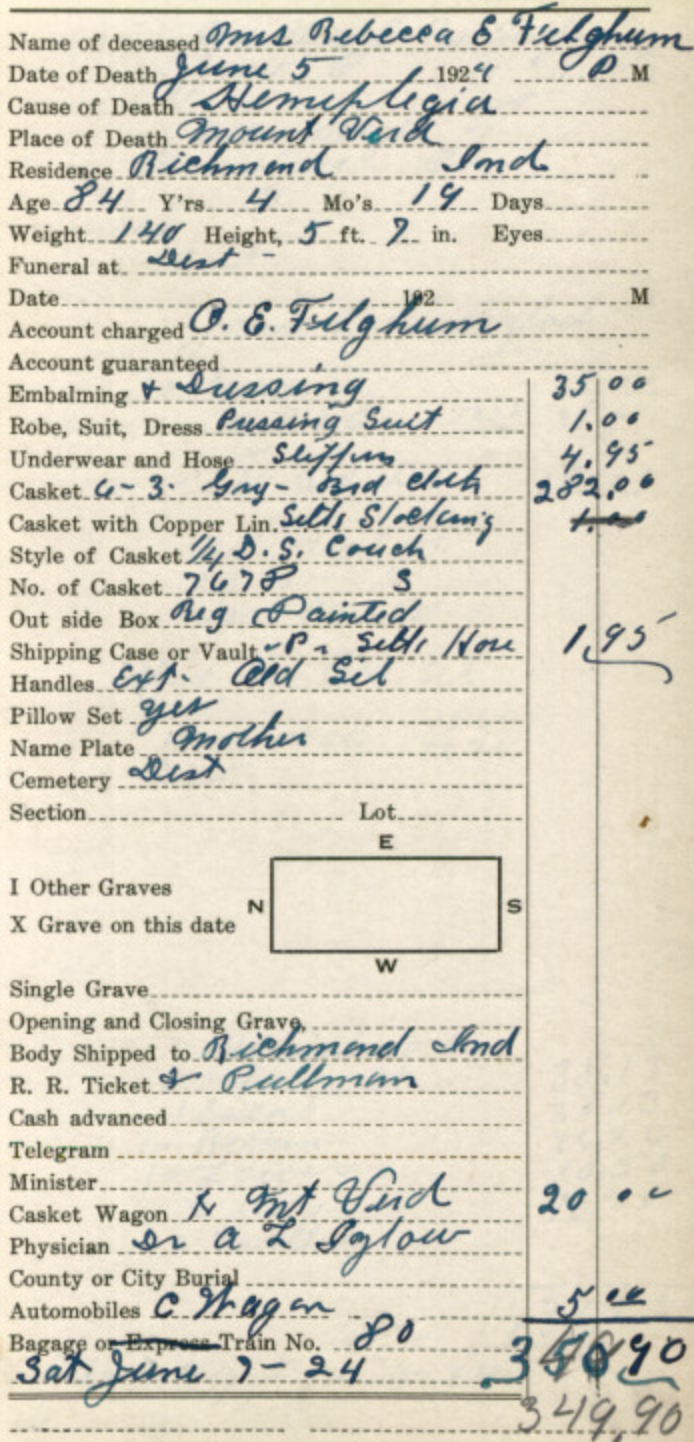 Name of deceased Mrs Rebecca E Filghum
Date of Death June 5 1924 P M
Cause of Death Hemiplegia
Place of Death Mount Verd
Residence Richmond Ind
Age 84 Y'rs 4 Mo's 19 Days
Weight 140 Height, 5 ft. 7 in. Eyes
Funeral at Dest -
Date 192 M
Account charged O. E. Filghum
Account guaranteed
Embalming & Dressing 35 00
Robe, Suit, Dress Pressing Suit 1.00
Underwear and Hose Slippers 4.95
Casket 6-3. Gry - Brd cloth 282.00
Casket with Copper Lin. Stocking 1.00
Style of Casket 1/4 D. S. Couch
No. of Casket 7678 S
Out side Box Reg Painted
Shipping Case or Vault - P - Hose 1.95
Handles Ext. Old Sil
Pillow Set yes
Name Plate Mother
Cemetery Dest
Section Lot
E
I Other Graves
N S
X Grave on this date
W
Single Grave
Opening and Closing Grave,
Body Shipped to Richmond Ind
R. R. Ticket & Pullman
Cash advanced
Telegram
Minister
Casket Wagon Mt Verd 20 00
Physician Dr A L
County or City Burial
Automobiles C Wagon 5 00
Bagage or Express Train No. 80
Sat June 7-24
349.90